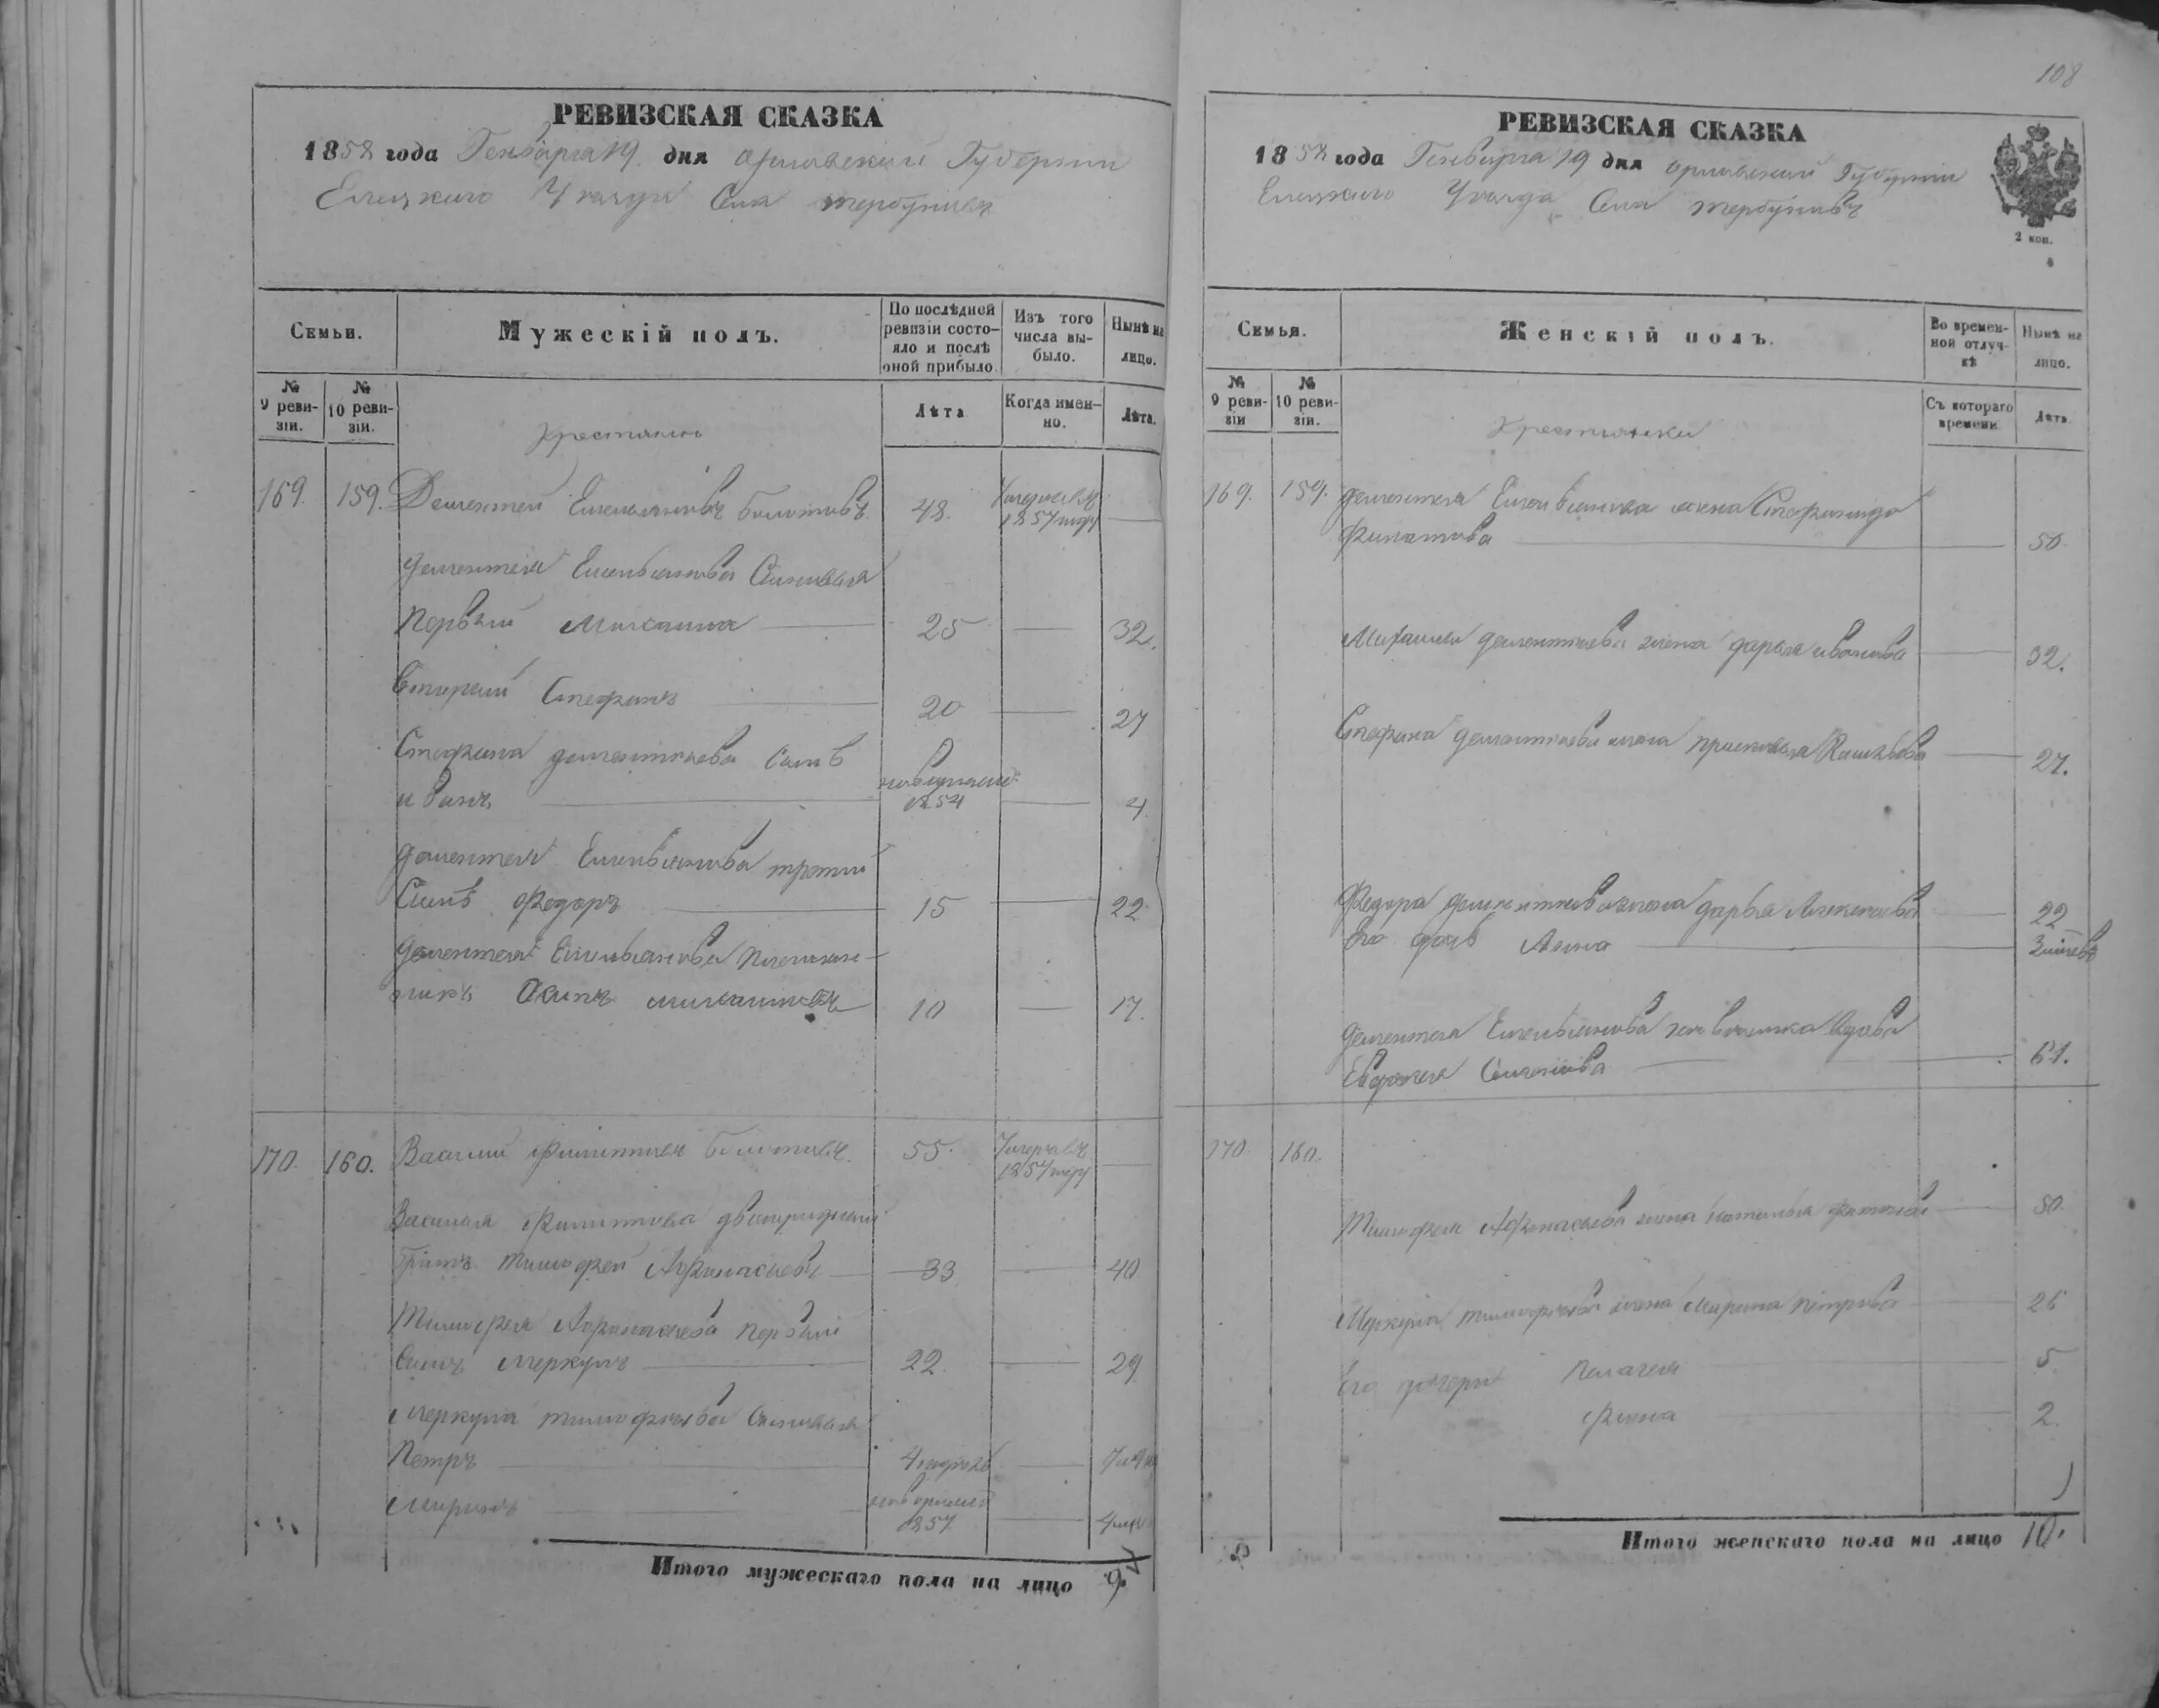 108
РЕВИЗСКАЯ СКАЗКА
1858 года Генваря 19 дня Орловской Губернии
Елецкого Уезда Села Тербуновъ
Семьи.
Мужескій полъ.
По послѣдней ревизіи состояло и послѣ оной прибыло.
Изъ того числа выбыло.
Нынѣ на лицо.
№ 9 ревизіи.
№ 10 ревизіи.
Лѣта
Когда именно.
Лѣта.
Крестьяне
169. 159. Дементей Емельяновъ Болотовъ 48. 1857 году
Дементея Емельянова Сыновья
Первый Михаила 25 32.
Вторый Стефанъ 20 27
Стефана Дементьева Сынъ
Иванъ 1854 4
Дементея Емельянова третий
Сынъ Федоръ 15 22
Дементея Емельянова племян-
никъ Осипъ 10 17.
170. 160. Василий Филиповъ Болотовъ 55. 1857 году
Василья Филипова двоюродный
братъ Тимофей Афонасьевъ 33 40
Тимофея Афонасьева первый
Сынъ Меркулъ 22. 29
Меркула Тимофеева Сыновья
Петръ
1857
Итого мужескаго пола на лицо 9.
РЕВИЗСКАЯ СКАЗКА
1858 года Генваря 19 дня Орловской Губернии
Елецкого Уезда Села Тербуновъ
2 коп.
Семья.
Женскій полъ.
Во временной отлучкѣ
Нынѣ на лицо.
№ 9 ревизіи
№ 10 ревизіи.
Съ котораго времени
Лѣта
Крестьянки
169. 159. Дементея Емельянова жена Степанида
Филатова 50.
Михаила Дементьева жена Дарья Иванова 32.
Стефана Дементьева жена 27.
Федора Дементьева жена Дарья Алексеева 22
Его дочь Анна
Дементея Емельянова невестка вдова
Семенова 61.
170. 160.
Тимофея Афонасьева жена Наталья 50.
Меркула Тимофеева жена Марина Петрова 26
Его дочери Пелагея 5
2.
Итого женскаго пола на лицо 10.